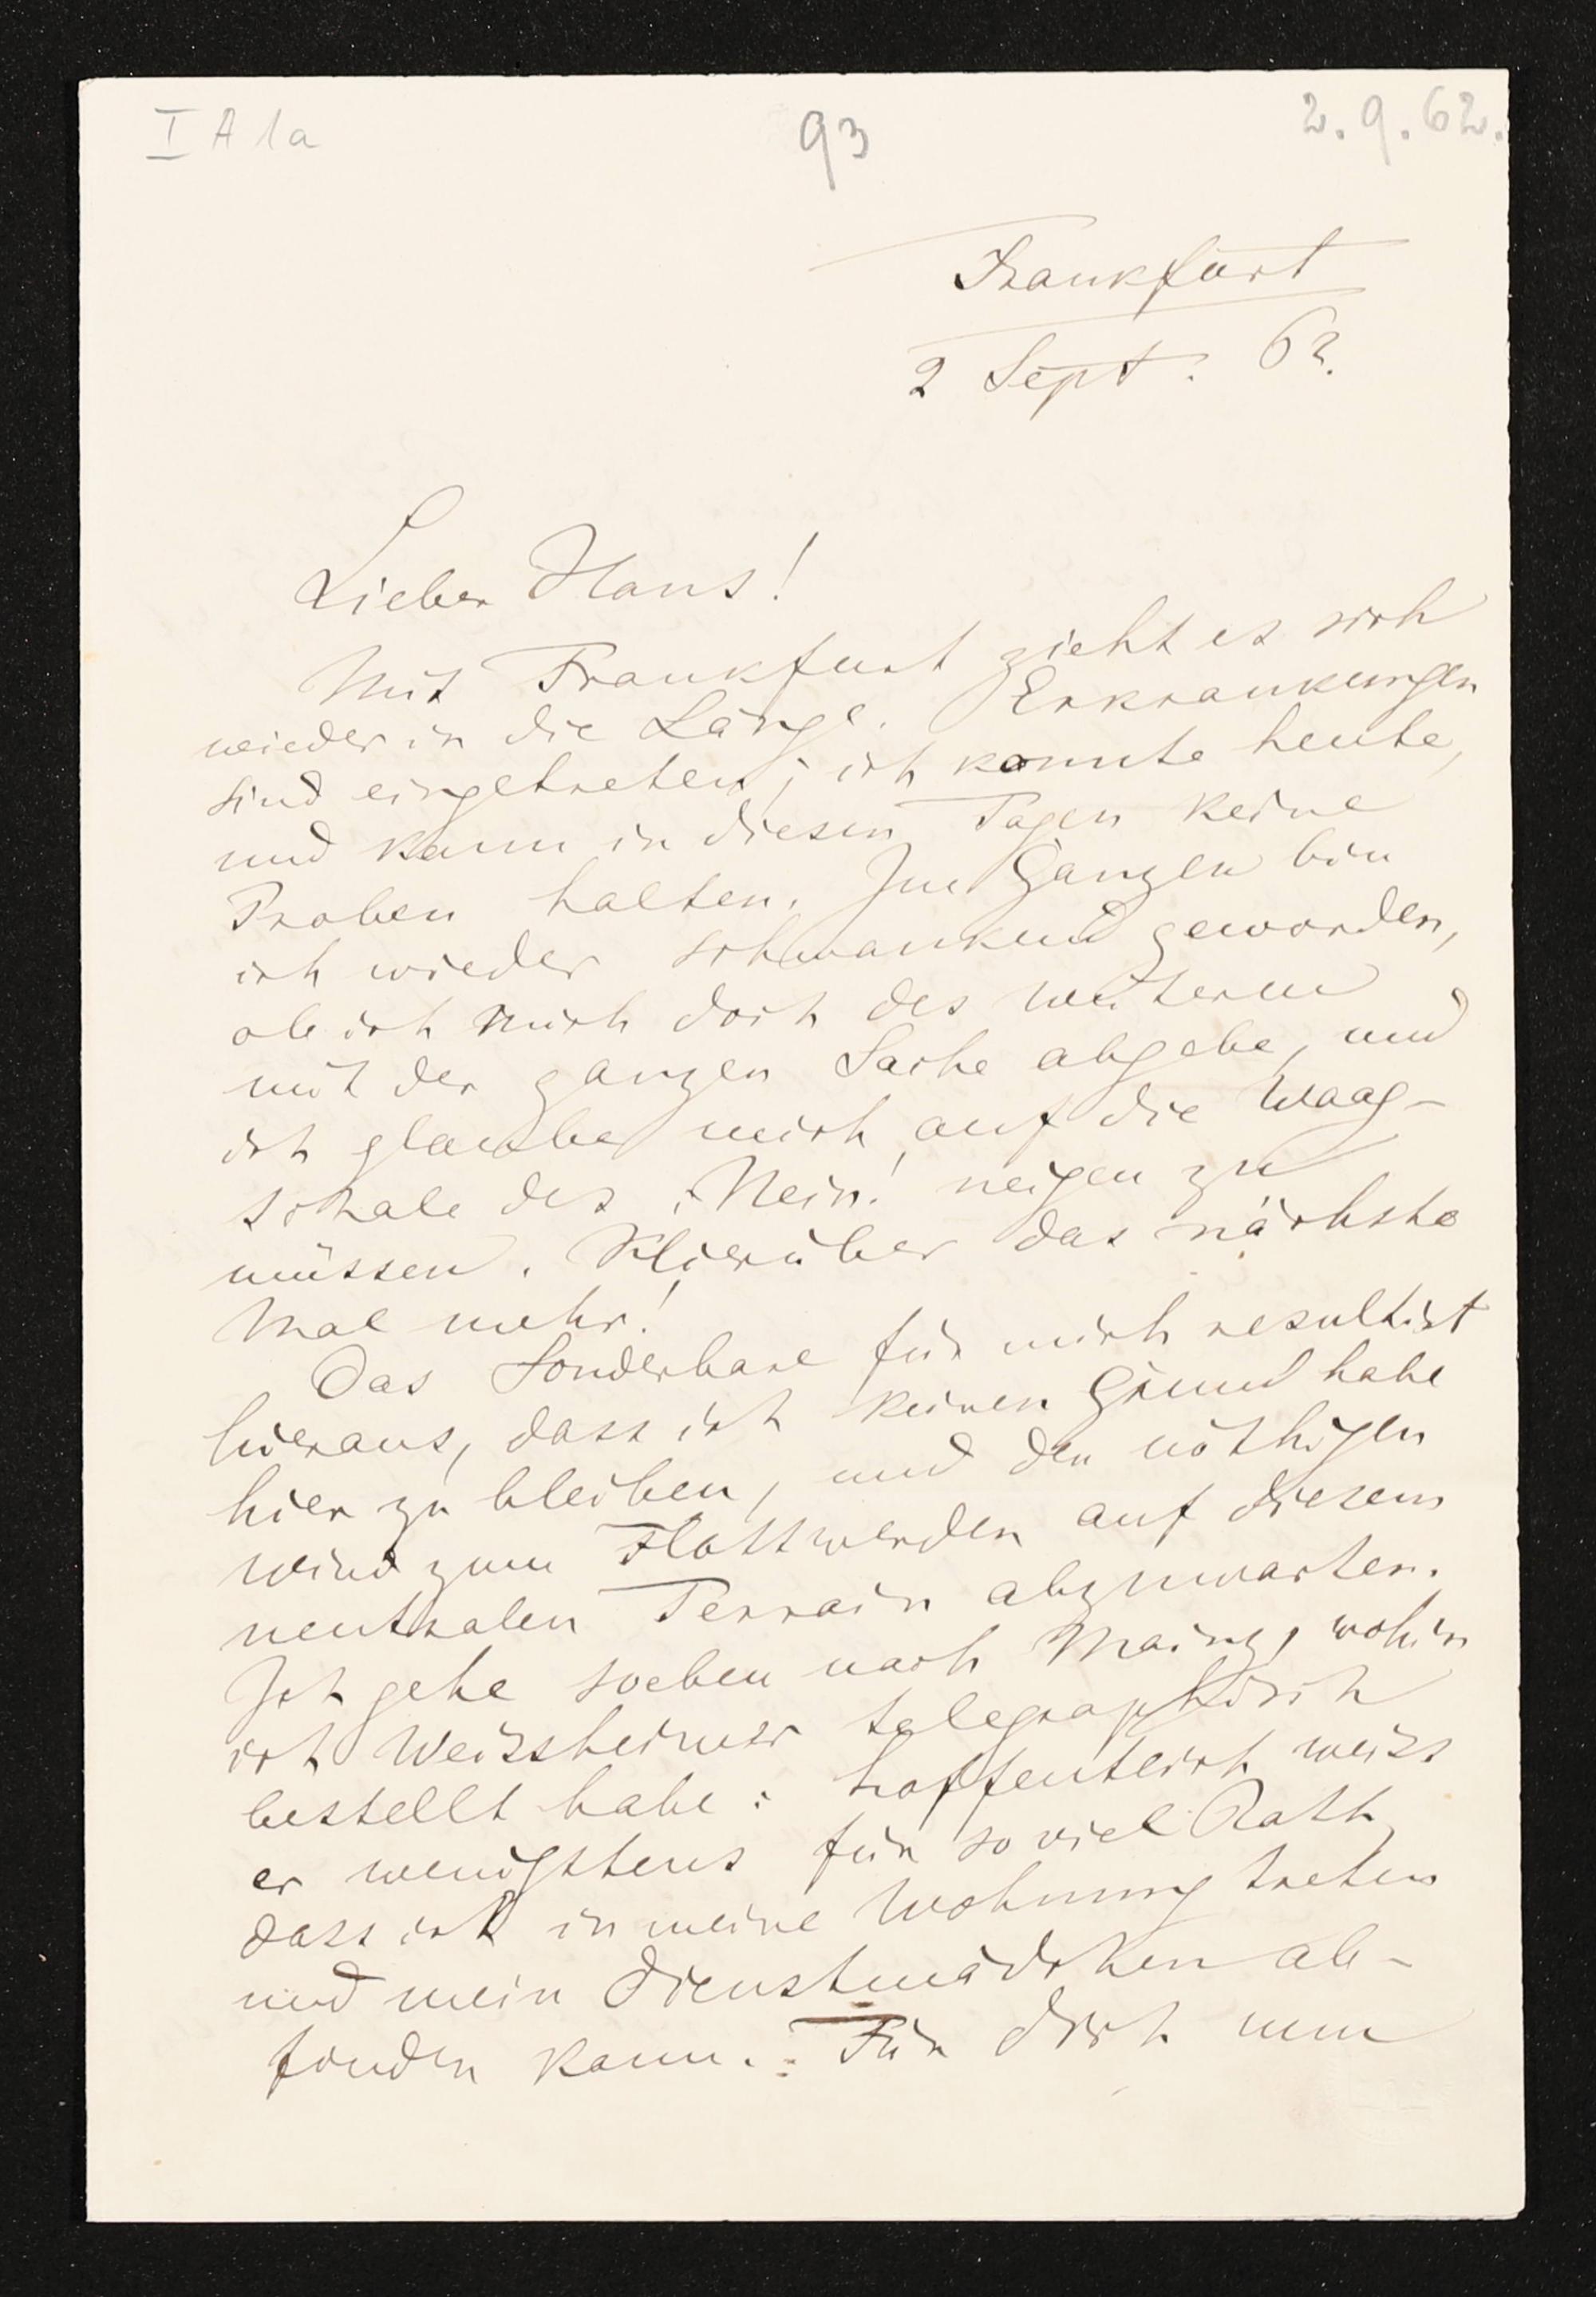 I A 1a
93
2.9.62.
Frankfurt
2 Sept. 62.
Lieber Hans!
Mit Frankfurt zieht es sich
wieder in die Länge. Erkrankungen
sind eingetreten; ich konnte heute,
und kann in diesen Tagen keine
Proben halten. Im Ganzen bin
ich wieder schwankend geworden,
ob ich mich doch des weiteren
mit der ganzen Sache abgebe, und
ich glaube mich auf die Waag-
schale des „Nein! neigen zu
müssen. Hierüber das nächste
Mal mehr!
Das Sonderbare für mich resultirt
hieraus, dass ich keinen Grund habe
hier zu bleiben, und den nöthigen
Wind zum Flottwerden auf diesem
neutralen Terrain abzuwarten.
Ich gehe soeben nach Mainz, wohin
ich Weissheimer telegraphisch
bestellt habe: hoffentlich weiss
er wenigstens für so viel Rath,
dass ich in meine Wohnung treten
und mein Dienstmädchen ab-
finden kann. Für dich nun